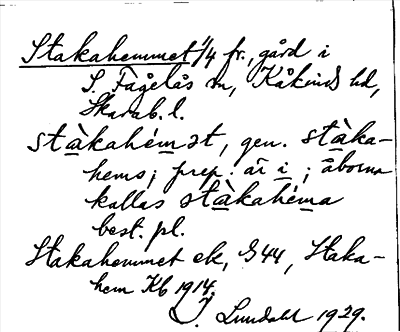 Stakahemmet 1/4 fr., gård i
S. Fågelås sn, Kåkinds hd,
Skarab. l.
stàkahémət, gen. stàka-
hems; prep. är i; åborna
kallas stàkahéma
best. pl.
Stakahemmet ek, G44, Staka-
hem Kb 1914.
J. Lundahl 1929.